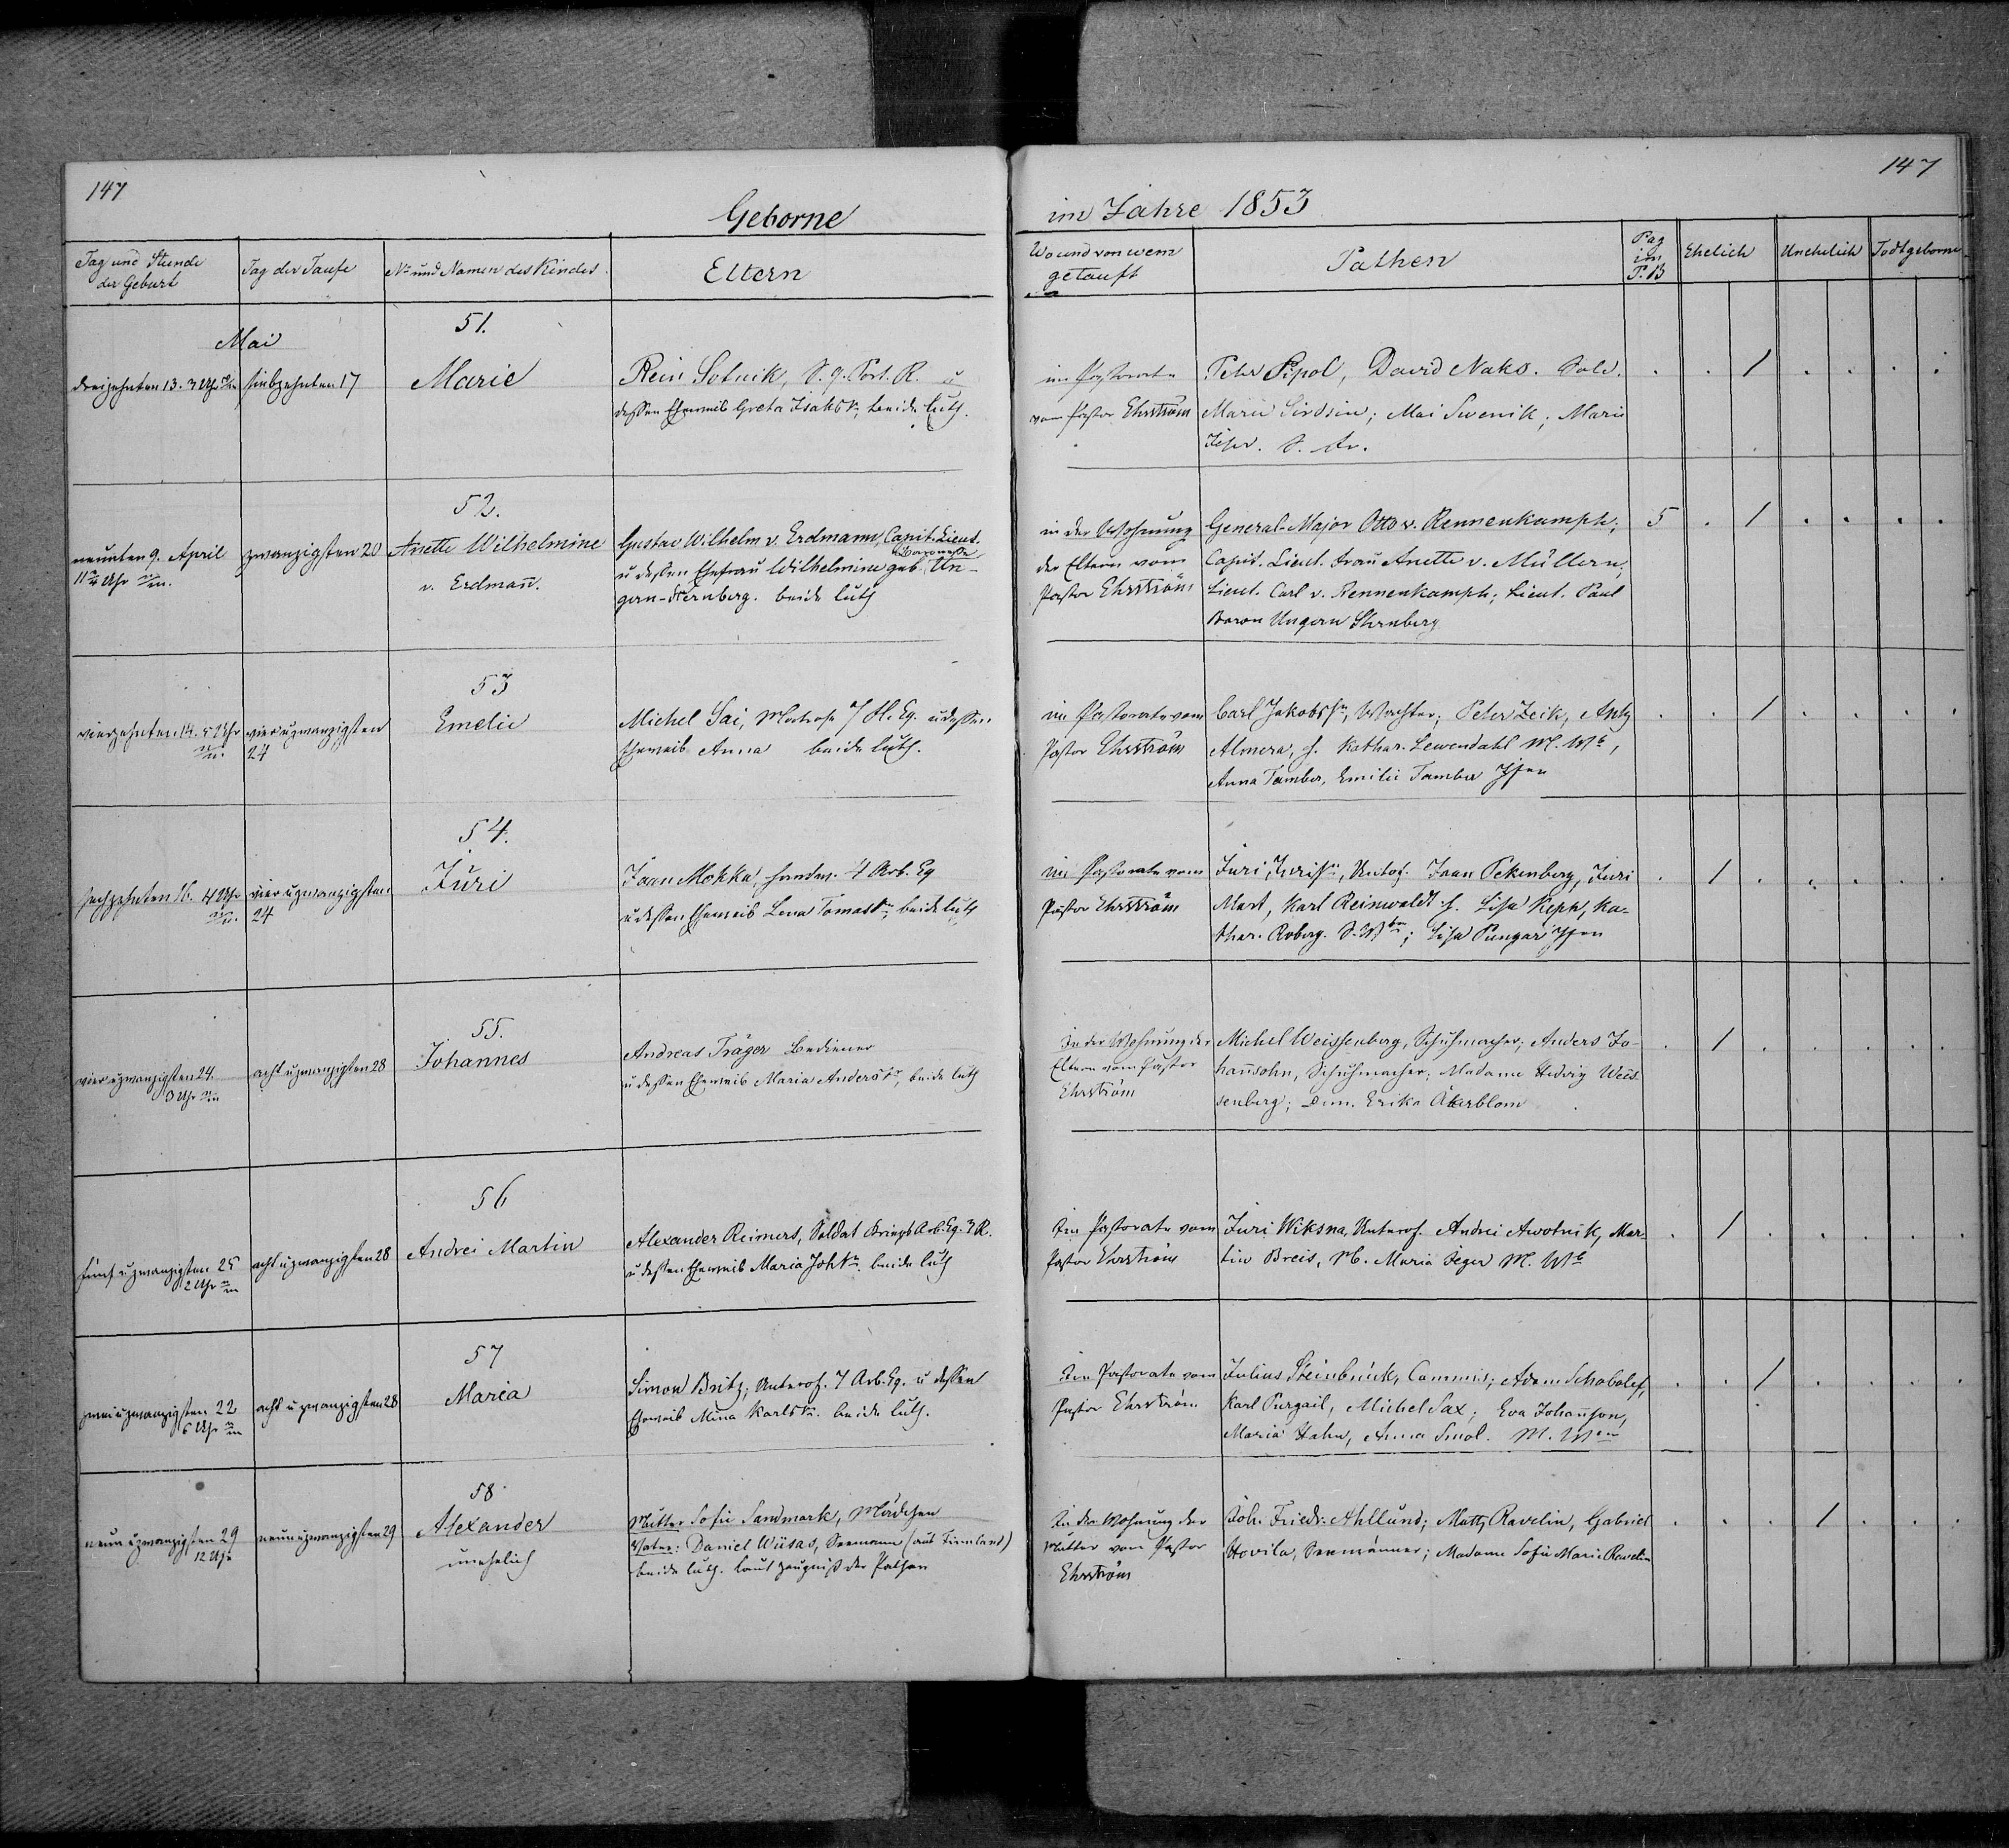 147
147
Geborne
im Jahre 1853
Tag und Stunde der Geburt
Tag der Taufe
No und Namen des Kindes.
Eltern
Wo und von wem getauft
Pathen
Pag im P.B
Ehelich
Unehelich
Todtgeborne
Mai
51.
dreizehnten 13. 3 Uhr
siebzehnten 17
Marie
Rein Sotnik, S. 9. Port. R. u
dessen Eheweib Greta Isaks beide luth.
im Pastorate
vom Pastor Ehrström
Peter Pipol, David Naks. Sold.
Marie Sirdsin; Mai Swenik; Marie
52.
neunten 9. April
11 Uhr
zwanzigsten 20
Anette Wilhelmine
v. Erdman̄.
Gustav Wilhelm v. Erdmann, Capit. Lieut.
Baronesse
u dessen Ehefrau Wilhelmine geb. Un-
gern-Sternberg. beide luth
in der Wohnung
der Eltern vom
Pastor Ehrström
General-Major Otto v. Rennenkampff;
Capit. Lieut. Frau Anette v. Müllern;
Lieut. Carl v. Rennenkampff; Lieut. Paul
Baron Ungern Sternberg
5
53
vierzehnten 14. 5 Uhr
vier u zwanzigsten
24
Emelie
Michel Sai, Matrose 7 Fl. Eq. u dessen
Eheweib Anna beide luth.
im Pastorate vom
Pastor Ehrström
Carl Jakobs, Wachter; Peter Zeik, Antz
Almera, Kathar. Lewendahl M. Wb,
Anna Tamber, Emilie Tamber
54.
sechzehnten 16. 4 Uhr
vier u zwanzigsten
24
Juri
Jaan Mekka, 4 Arb. Eq
u dessen Eheweib Lena Tomas beide luth
im Pastorate vom
Pastor Ehrström
Juri, Untof. Jaan Pekenberg, Juri
Mart, Karl Reinwaldt. Lisa Keph, Ka-
thar. Roberg. S. W; Lisa Pungar
55.
vier u zwanzigsten 24.
3 Uhr
acht u zwanzigsten 28
Johannes
Andreas Träger Bediener
u dessen Eheweib Maria Anders, beide luth
In der Wohnung der
Eltern vom Pastor
Ehrström
Michel Weissenberg, Schuhmacher; Anders Jo-
han̄sohn, Schuhmacher; Madame Hedwig Weis-
senberg; Dem. Erika Åkerblom
56
fünf u zwanzigsten 25
2 Uhr
acht u zwanzigsten 28
Andrei Martin
Alexander Reimers, Soldat Kriegs Arb. Eq. 3 R.
u dessen Eheweib Maria Joh beide luth
Im Pastorate vom
Pastor Ehrström
Juri Wiksna, Unterof. Andrei Awotnik, Mar-
tin Breis, M. Maria Jeger M. Wb
57
zwei u zwanzigsten 22
6 Uhr
acht u zwanzigsten 28
Maria
Simon Britz, Unterof. 7 Arb. Eq. u dessen
Eheweib Mina Karls beide luth.
Im Pastorate vom
Pastor Ehrström
Julius Steinbrück, Commis; Adam Schobolef,
Karl Purgail, Michel Sax; Eva Johan̄son,
Maria Hahn, Anna Smol. M. W
58
neun u zwanzigsten 29
12 Uhr
neun u zwanzigsten 29
Alexander
unehelich
Mutter Sofie Sandmark, Mädchen
Vater: Daniel Wiitas, Seemann (aus Finnland)
beide luth. laut Zeugniß der Pathen
In der Wohnung der
Mutter vom Pastor
Ehrström
Joh. Friedr. Ahllund; Matts Ravelin, Gabriel
Hovila, Seemänner; Madame Sofie Marie Ravelin